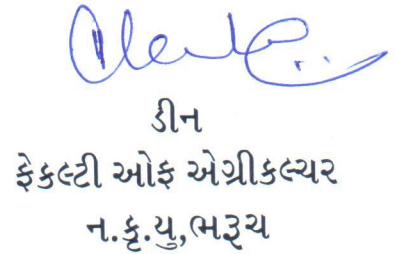 ડીન
ફેકલ્ટી ઓફ એગ્રીકલ્ચર
ન.કૃ.યુ,ભરૂચ